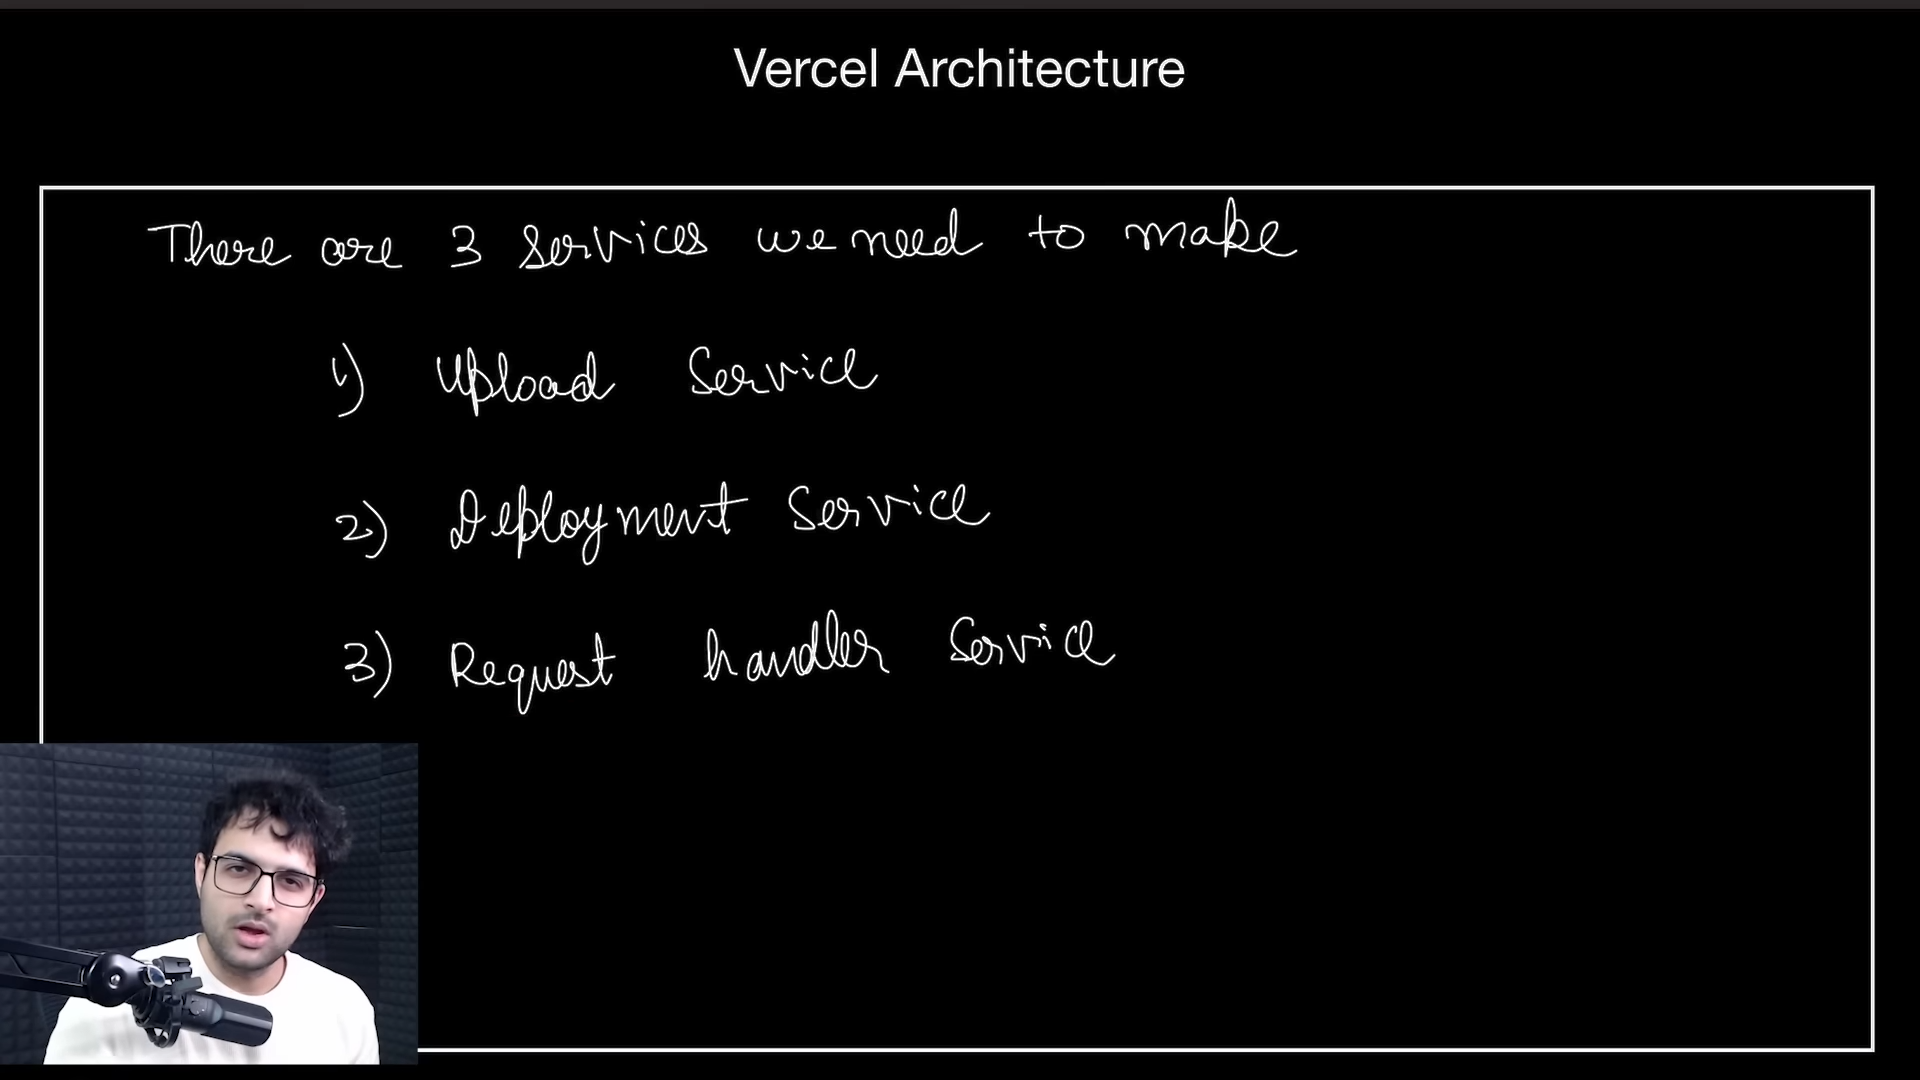 Vercel Architecture
There are 3 services we need to make
1) Upload Service
2) Deployment Service
3) Request handler Service